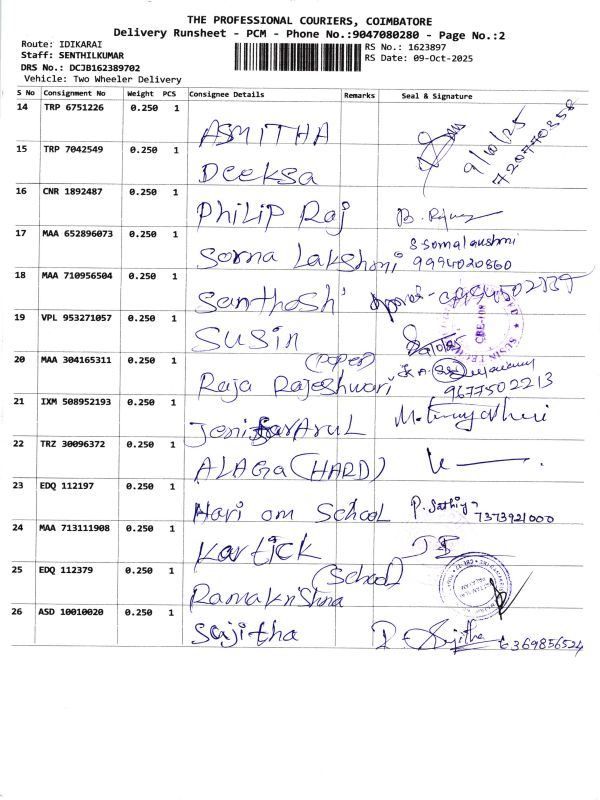 THE PROFESSIONAL COURIERS, COIMBATORE
Delivery Runsheet - PCM - Phone No.:9047080280 - Page No.:2
Route: IDIKARAI
Staff: SENTHILKUMAR
DRS No.: DCJB162389702
Vehicle: Two Wheeler Delivery
RS No.: 1623897
RS Date: 09-Oct-2025
S No Consignment No Weight PCS Consignee Details Remarks Seal & Signature
14 TRP 6751226 0.250 1 ASMITHA 9/10/25
15 TRP 7042549 0.250 1 Deeksa
16 CNR 1892487 0.250 1 Philip Raj
17 MAA 652896073 0.250 1 Soma Lakshmi S Somalakshmi 9994020860
18 MAA 710956504 0.250 1 Santhosh
19 VPL 953271057 0.250 1 SUSIN
20 MAA 304165311 0.250 1 Raja Rajeshwari (Paper) 9677502213
21 IXM 508952193 0.250 1 Arul
22 TRZ 30096372 0.250 1 ALAGA (HARD)
23 EDQ 112197 0.250 1 Hari om School P. Sathiya 7373921000
24 MAA 713111908 0.250 1 Kartick
25 EDQ 112379 0.250 1 Ramakrishna (School)
26 ASD 10010020 0.250 1 Sajitha Sujitha 6369856524